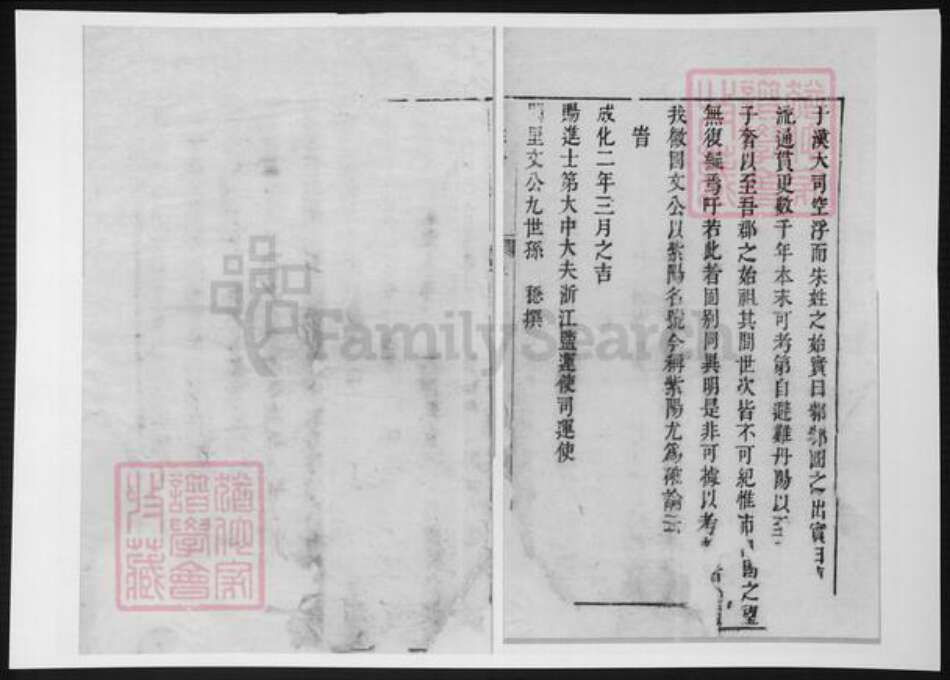 于漢大司空浮而朱姓之始實曰邾邾國之出實曰
流通貫更數千年本末可考第自避難丹陽以至
子奢以至吾郡之始祖其間世次皆不可紀惟市之望
無復疑焉吁若此者固别同異明是非可據以考
我徽國文公以紫陽名號今稱紫陽尤爲確論云
旹
成化二年三月之吉
賜進士第大中大夫浙江鹽運使司運使
里文公九世孫 穏撰
FamilySearch
譜學會
收藏